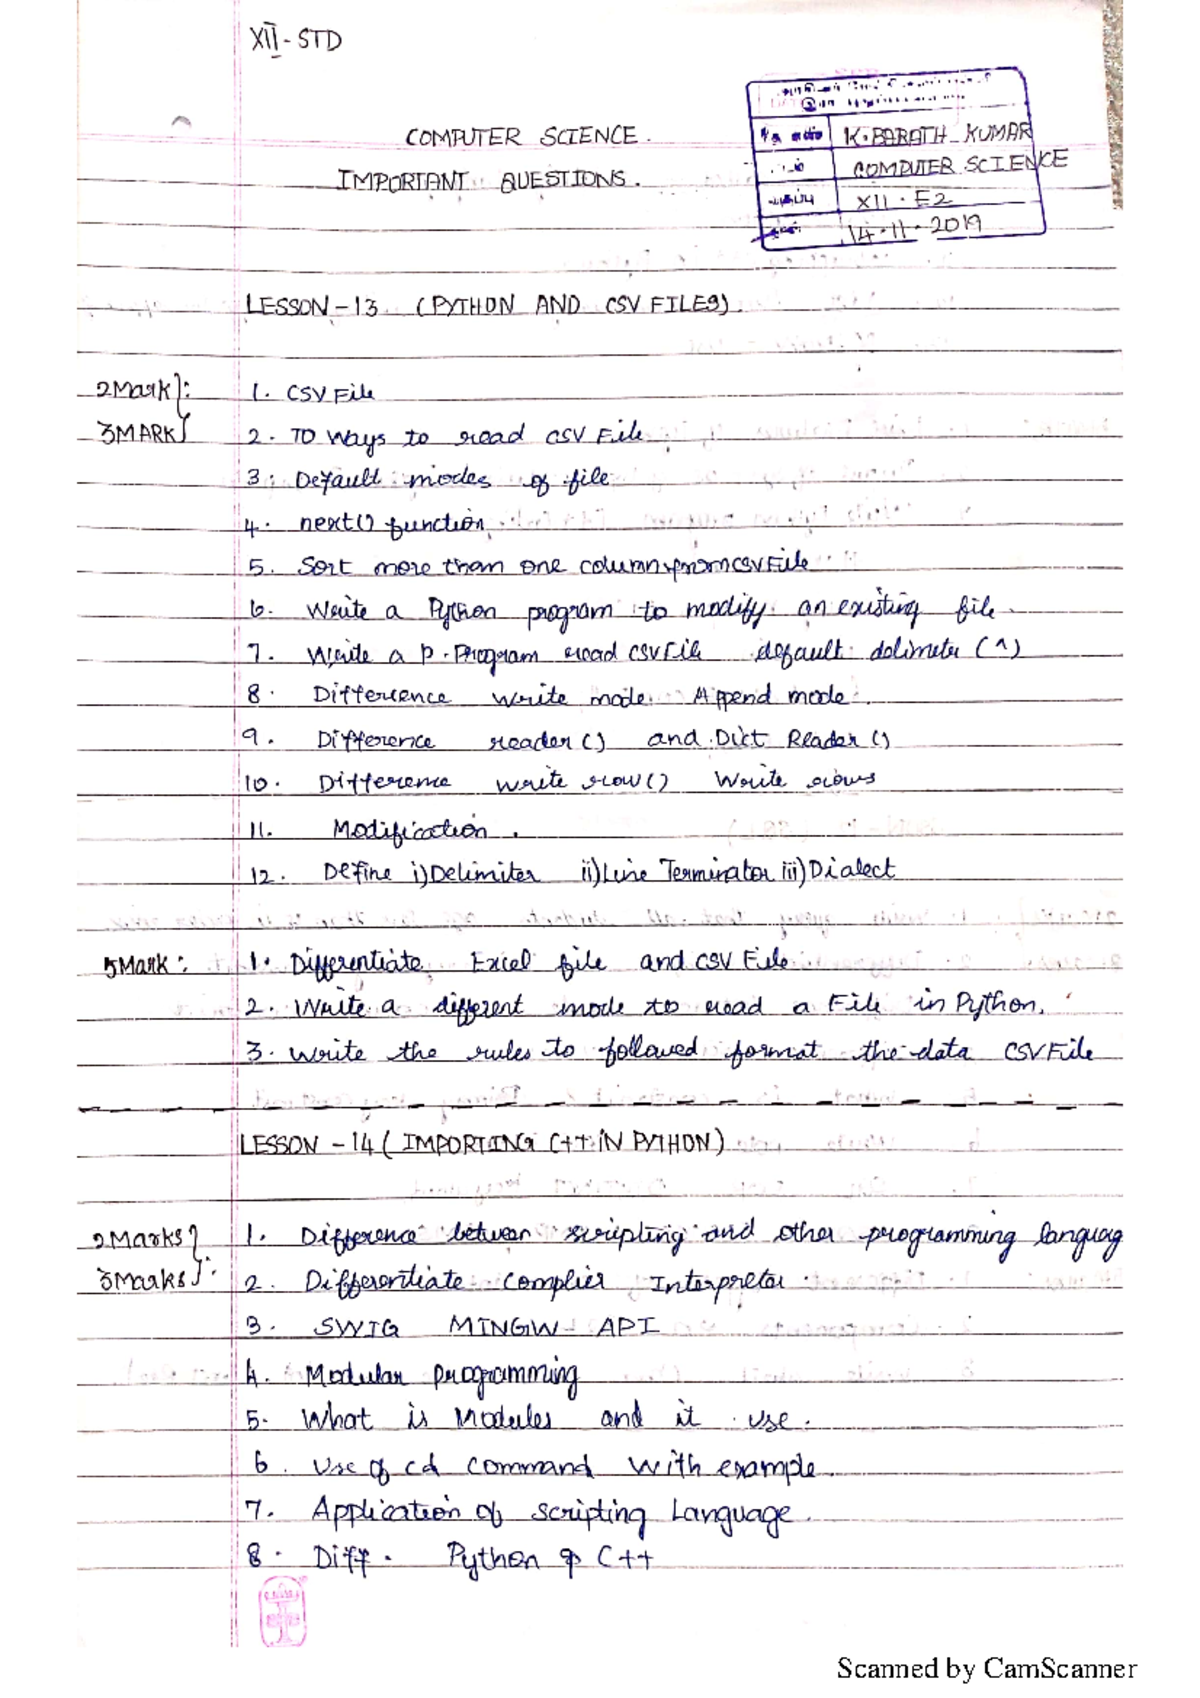 XII - STD
COMPUTER SCIENCE.
IMPORTANT QUESTIONS.
K. BARATH KUMAR
COMPUTER SCIENCE
XII . E2
14.11.2019
LESSON - 13 (PYTHON AND CSV FILES).
2Mark}: 1. CSV File
3MARK} 2. TO ways to read CSV File
3. Default modes of file
4. next() function
5. Sort more than one column from CSV File
6. Write a Python program to modify an existing file
7. Write a p. Program read CSV File default delimeter (^)
8. Difference write mode Append mode.
9. Difference reader() and Dict Reader ()
10. Difference write row() Write rows
11. Modification.
12. Define i) Delimiter ii) Line Terminator iii) Dialect
5Mark : 1. Differentiate Excel file and CSV File
2. Write a different mode to read a File in Python.
3. Write the rules to followed format the data CSV File
LESSON - 14 ( IMPORTING C++ IN PYTHON)
2Marks} 1. Difference between scripting and other programming languag
3Marks}: 2. Differentiate Complier Interpreter
3. SWIG MINGW API
4. Modular programming
5. What is Modules and it use.
6. Use of cd command with example
7. Application of scripting Language.
8. Diff. Python & C++
Scanned by CamScanner